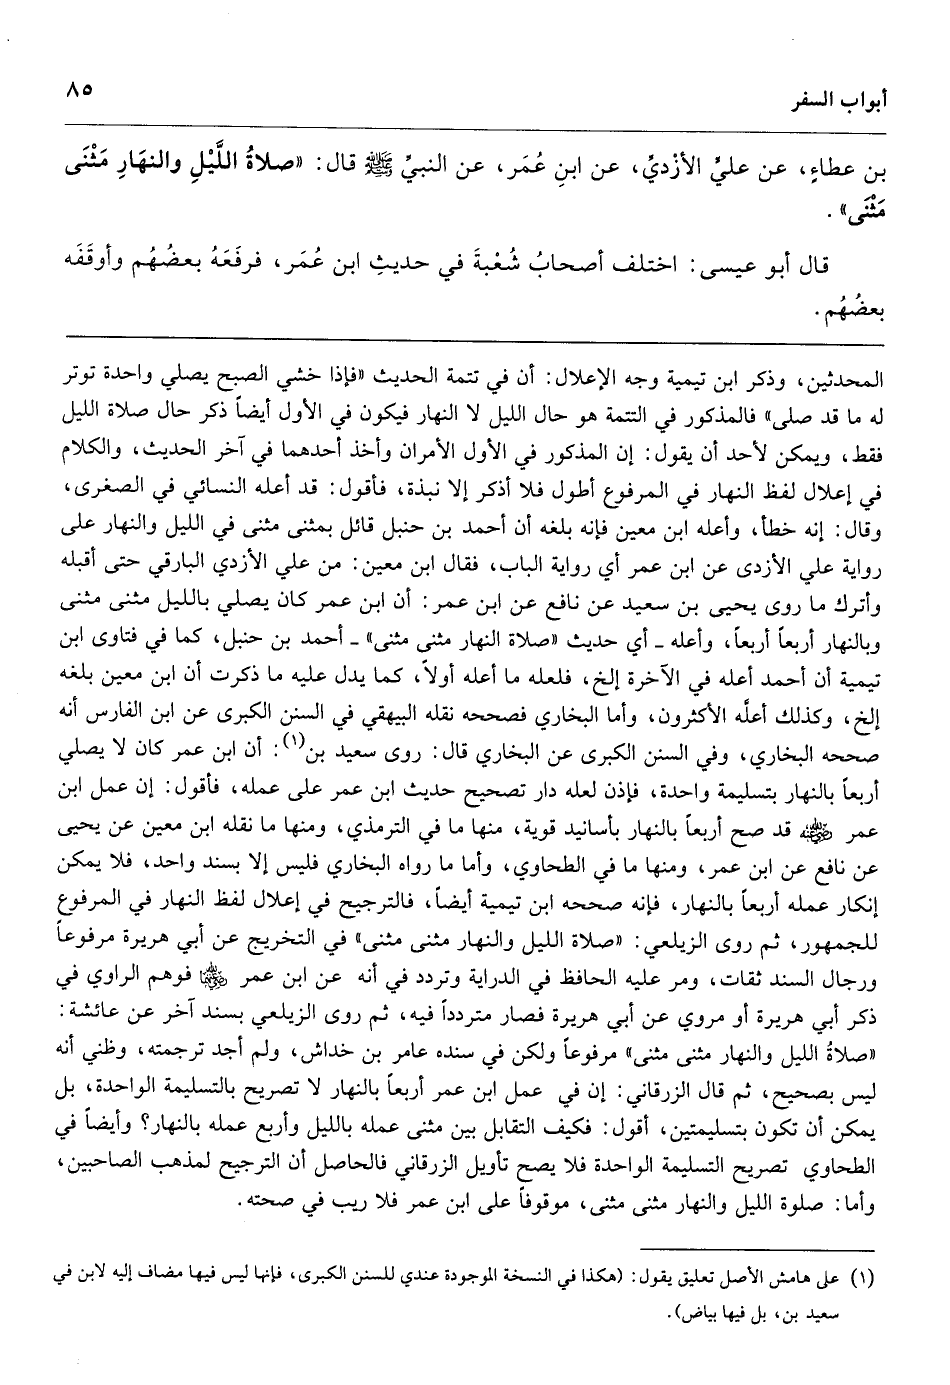 أبواب السفر
٨٥
بن عطاءٍ، عن عليٍّ الأزْديِّ، عن ابنِ عُمَر، عن النبيِّ ﷺ قال: «صلاةُ اللَّيْلِ والنهَارِ مَثْنَى
مَثْنَى».
قال أبو عيسى: اختلف أصحابُ شُعْبةَ في حديثِ ابن عُمَر، فرفَعَهُ بعضُهُم وأوقَفَه
بعضُهُم.
المحدثين، وذكر ابن تيمية وجه الإعلال: أن في تتمة الحديث «فإذا خشي الصبح يصلي واحدة توتر
له ما قد صلى» فالمذكور في التتمة هو حال الليل لا النهار فيكون في الأول أيضاً ذكر حال صلاة الليل
فقط، ويمكن لأحد أن يقول: إن المذكور في الأول الأمران وأخذ أحدهما في آخر الحديث، والكلام
في إعلال لفظ النهار في المرفوع أطول فلا أذكر إلا نبذة، فأقول: قد أعله النسائي في الصغرى،
وقال: إنه خطأ، وأعله ابن معين فإنه بلغه أن أحمد بن حنبل قائل بمثنى مثنى في الليل والنهار على
رواية علي الأزدى عن ابن عمر أي رواية الباب، فقال ابن معين: من علي الأزدي البارقي حتى أقبله
وأترك ما روى يحيى بن سعيد عن نافع عن ابن عمر: أن ابن عمر كان يصلي بالليل مثنى مثنى
وبالنهار أربعاً أربعاً، وأعله ـ أي حديث «صلاة النهار مثنى مثنى» ـ أحمد بن حنبل، كما في فتاوى ابن
تيمية أن أحمد أعله في الآخرة إلخ، فلعله ما أعله أولاً، كما يدل عليه ما ذكرت أن ابن معين بلغه
إلخ، وكذلك أعلَّه الأكثرون، وأما البخاري فصححه نقله البيهقي في السنن الكبرى عن ابن الفارس أنه
صححه البخاري، وفي السنن الكبرى عن البخاري قال: روى سعيد بن(١): أن ابن عمر كان لا يصلي
أربعاً بالنهار بتسليمة واحدة، فإذن لعله دار تصحيح حديث ابن عمر على عمله، فأقول: إن عمل ابن
عمر رضي الله عنه قد صح أربعاً بالنهار بأسانيد قوية، منها ما في الترمذي، ومنها ما نقله ابن معين عن يحيى
عن نافع عن ابن عمر، ومنها ما في الطحاوي، وأما ما رواه البخاري فليس إلا بسند واحد، فلا يمكن
إنكار عمله أربعاً بالنهار، فإنه صححه ابن تيمية أيضاً، فالترجيح في إعلال لفظ النهار في المرفوع
للجمهور، ثم روى الزيلعي: «صلاة الليل والنهار مثنى مثنى» في التخريج عن أبي هريرة مرفوعاً
ورجال السند ثقات، ومر عليه الحافظ في الدراية وتردد في أنه عن ابن عمر رضي الله عنهما فوهم الراوي في
ذكر أبي هريرة أو مروي عن أبي هريرة فصار متردداً فيه، ثم روى الزيلعي بسند آخر عن عائشة:
«صلاةُ الليل والنهار مثنى مثنى» مرفوعاً ولكن في سنده عامر بن خداش، ولم أجد ترجمته، وظني أنه
ليس بصحيح، ثم قال الزرقاني: إن في عمل ابن عمر أربعاً بالنهار لا تصريح بالتسليمة الواحدة، بل
يمكن أن تكون بتسليمتين، أقول: فكيف التقابل بين مثنى عمله بالليل وأربع عمله بالنهار؟ وأيضاً في
الطحاوي تصريح التسليمة الواحدة فلا يصح تأويل الزرقاني فالحاصل أن الترجيح لمذهب الصاحبين،
وأما: صلوة الليل والنهار مثنى مثنى، موقوفاً على ابن عمر فلا ريب في صحته.
(١) على هامش الأصل تعليق يقول: (هكذا في النسخة الموجودة عندي للسنن الكبرى، فإنها ليس فيها مضاف إليه لابن في
سعيد بن، بل فيها بياض).